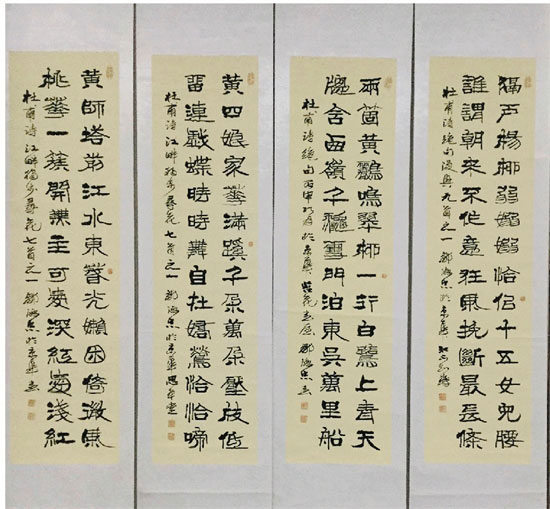 隔戶楊柳弱嫋嫋恰佀十五女兒腰
誰謂朝來不作意狂風挽斷最長條
杜甫詩絕句漫興九首之一 於京華
兩箇黃鸝鳴翠柳一行白鷺上青天
牕含西嶺千龝雪門泊東吳萬里船
杜甫詩絕句丙申 於京華
黃四娘家華滿蹊千朵萬朵壓枝低
畱連戲蝶時時舞自在嬌鶯恰恰啼
杜甫詩江畔獨步尋花七首之一 於京華
黃師塔前江水東春光嬾困倚微風
桃華一簇開無主可愛深紅愛淺紅
杜甫詩江畔獨步尋花七首之一 於京華